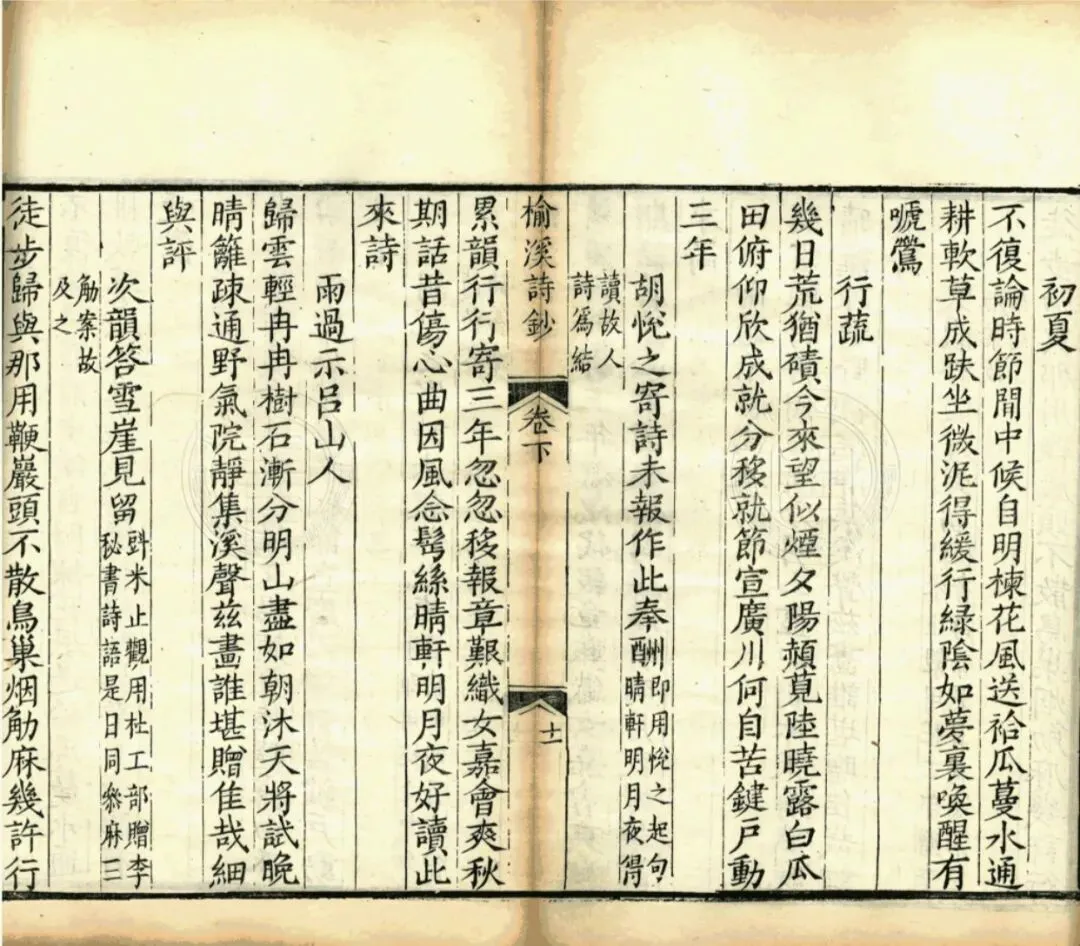 初夏
不復論時節閒中候自明楝花風送袷瓜蔓水通
耕軟草成趺坐微泥得緩行綠陰如夢裏喚醒有
嗁鶯
行蔬
幾日荒猶磧今來望似煙夕陽頳莧陸曉露白瓜
田俯仰欣成就分移就節宣廣川何自苦鍵戸動
三年
胡悅之寄詩未報作此奉酬即用悅之起句
晴軒明月夜得
讀故人
詩爲結
榆溪詩鈔
卷下
十一
累韻行行寄三年忽忽移報章艱織女嘉會爽秋
期話昔傷心曲因風念鬂絲晴軒明月夜好讀此
來詩
雨過示呂山人
歸雲輕冉冉樹石漸分明山盡如朝沐天將試晚
晴籬疎通野氣院靜集溪聲茲畵誰堪贈佳哉細
與評
次韻答雪崖見留㪷米止觀用杜工部贈李
秘書詩語是日同叅麻三
觔案故
及之
徒步歸與那用鞭巖頭不散鳥巢烟觔麻幾許行